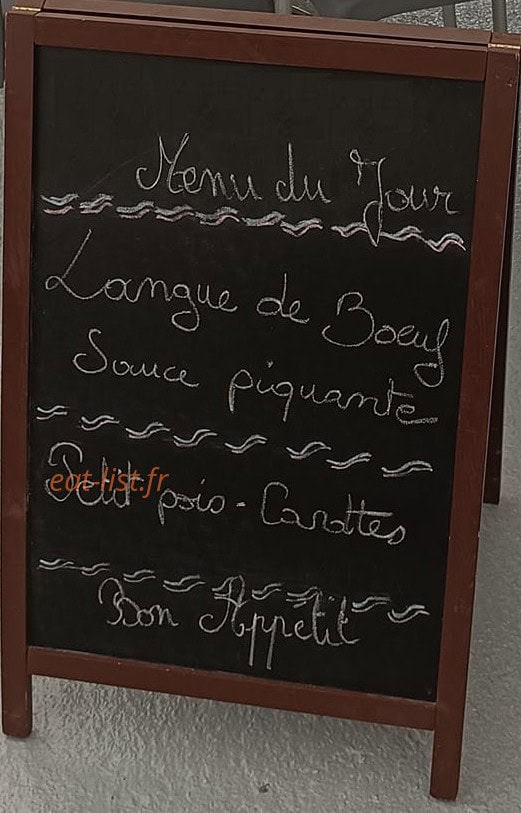 Menu du Jour
Langue de Boeuf
Sauce piquante
Petit pois - Carottes
eat-list.fr
Bon Appétit